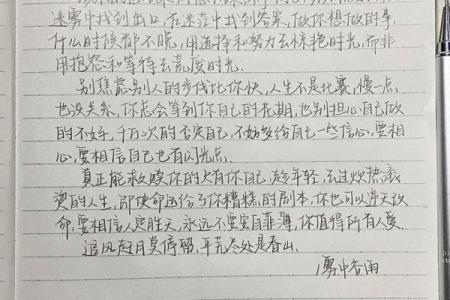 迷雾中找到出口,在迷茫中找到答案,做你想做的事,
什么时候都不晚,用选择和努力去惊艳时光,而非
用抱怨和等待去荒废时光。
别焦虑别人的步伐比你快,人生不是比赛,慢一点
也没关系,你总会等到你自己的花期,也别担心自己做
的不好,千万次的否定自己,不妨多给自己一些信心,要相
心,要相信自己也有闪光点。
真正能救赎你的只有你自己,趁年轻,去过炙热滚
烫的人生,即使命运给了你糟糕的剧本,你也可以逆天改
命,要相信人定胜天,永远不要妄自菲薄,你值得所有人爱.
追风赶月莫停留,平芜尽处是春山.